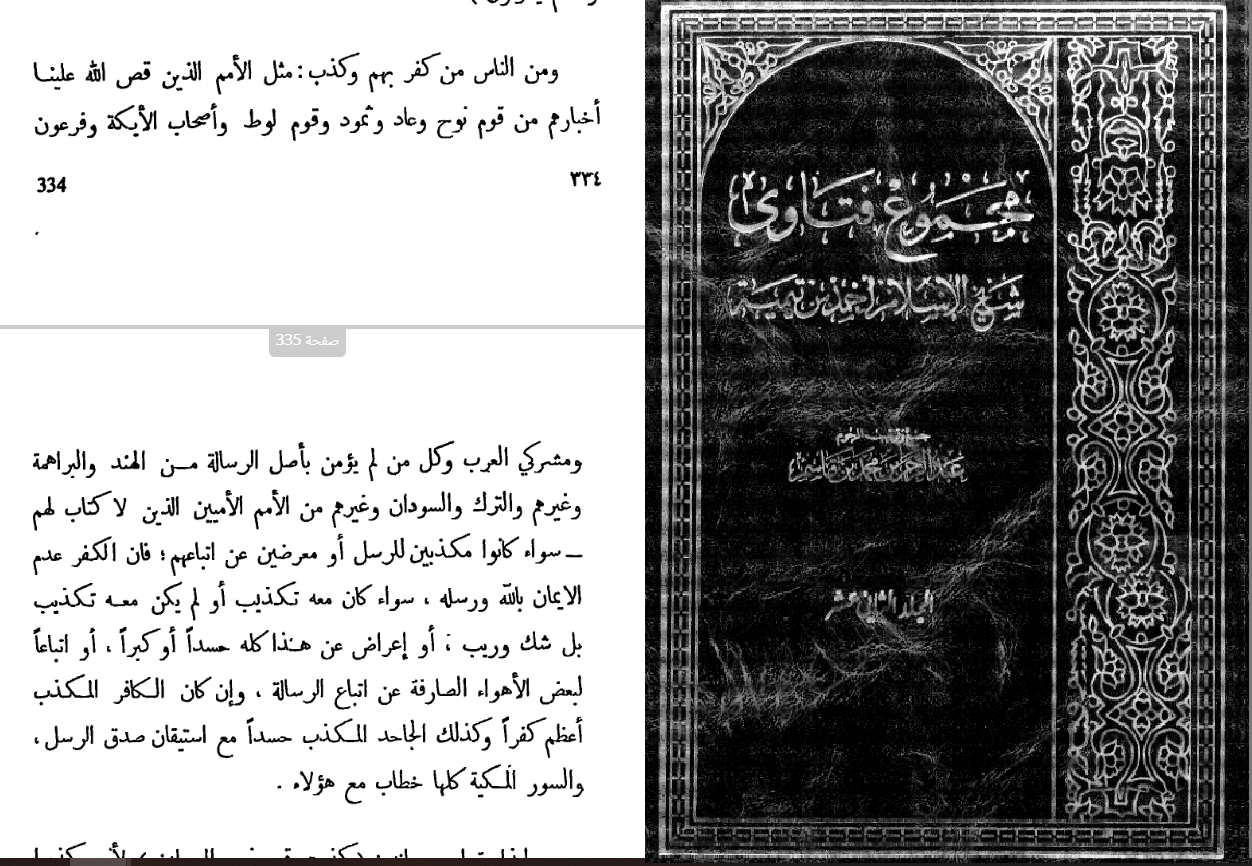 ومن الناس من كفر بهم وكذب : مثل الأمم الذين قص الله علينا
أخبارهم من قوم نوح وعاد وثمود وقوم لوط وأصحاب الأيكة وفرعون
334
٣٣٤
صفحة 335
ومشركي العرب وكل من لم يؤمن بأصل الرسالة من الهند والبراهمة
وغيرهم والترك والسودان وغيرهم من الأمم الأميين الذين لا كتاب لهم
— سواء كانوا مكذبين للرسل أو معرضين عن اتباعهم ؛ فان الكفر عدم
الايمان بالله ورسله ، سواء كان معه تكذيب أو لم يكن معه تكذيب
بل شك وريب ؛ أو إعراض عن هذا كله حسداً أو كبراً ، أو اتباعاً
لبعض الأهواء الصارفة عن اتباع الرسالة ، وإن كان الكافر المكذب
أعظم كفراً وكذلك الجاحد المكذب حسداً مع استيقان صدق الرسل ،
والسور المكية كلها خطاب مع هؤلاء .
مجموع فتاوى
شيخ الإسلام أحمد بن تيمية
عبد الرحمن بن محمد بن قاسم
المجلد الثاني عشر